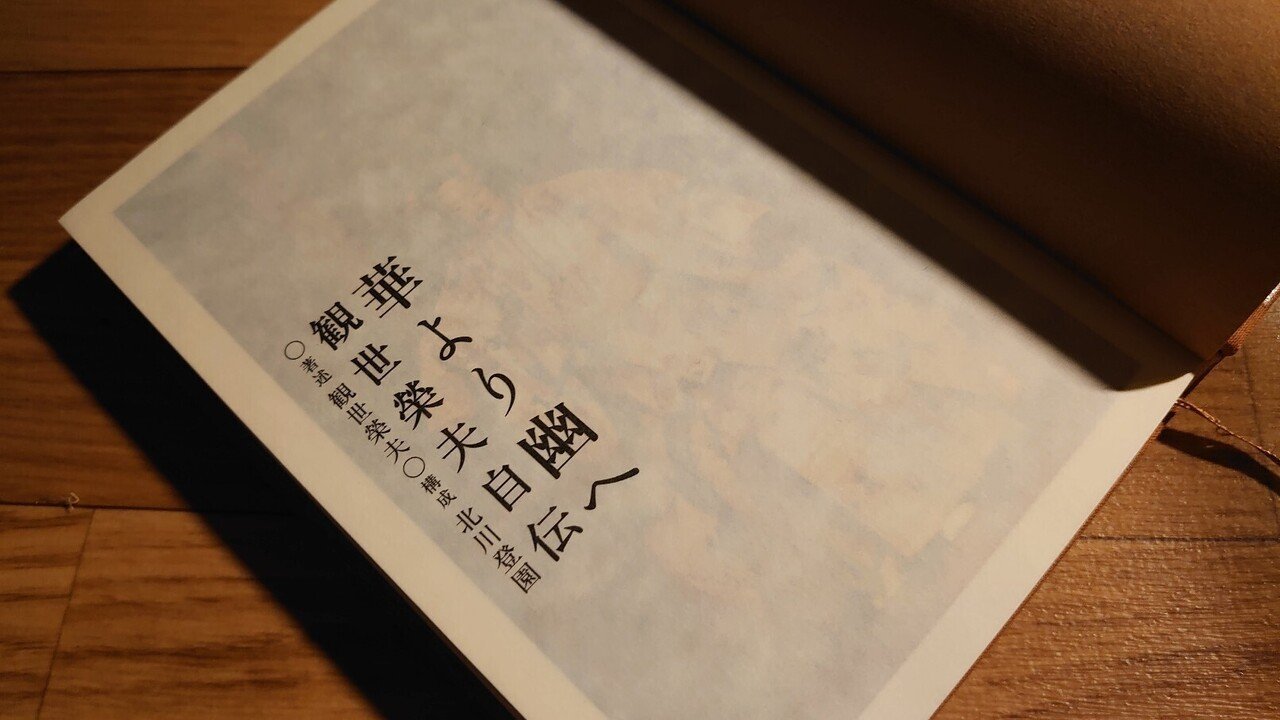 華より幽へ
観世榮夫自伝
○著述 観世榮夫○構成 北川登園